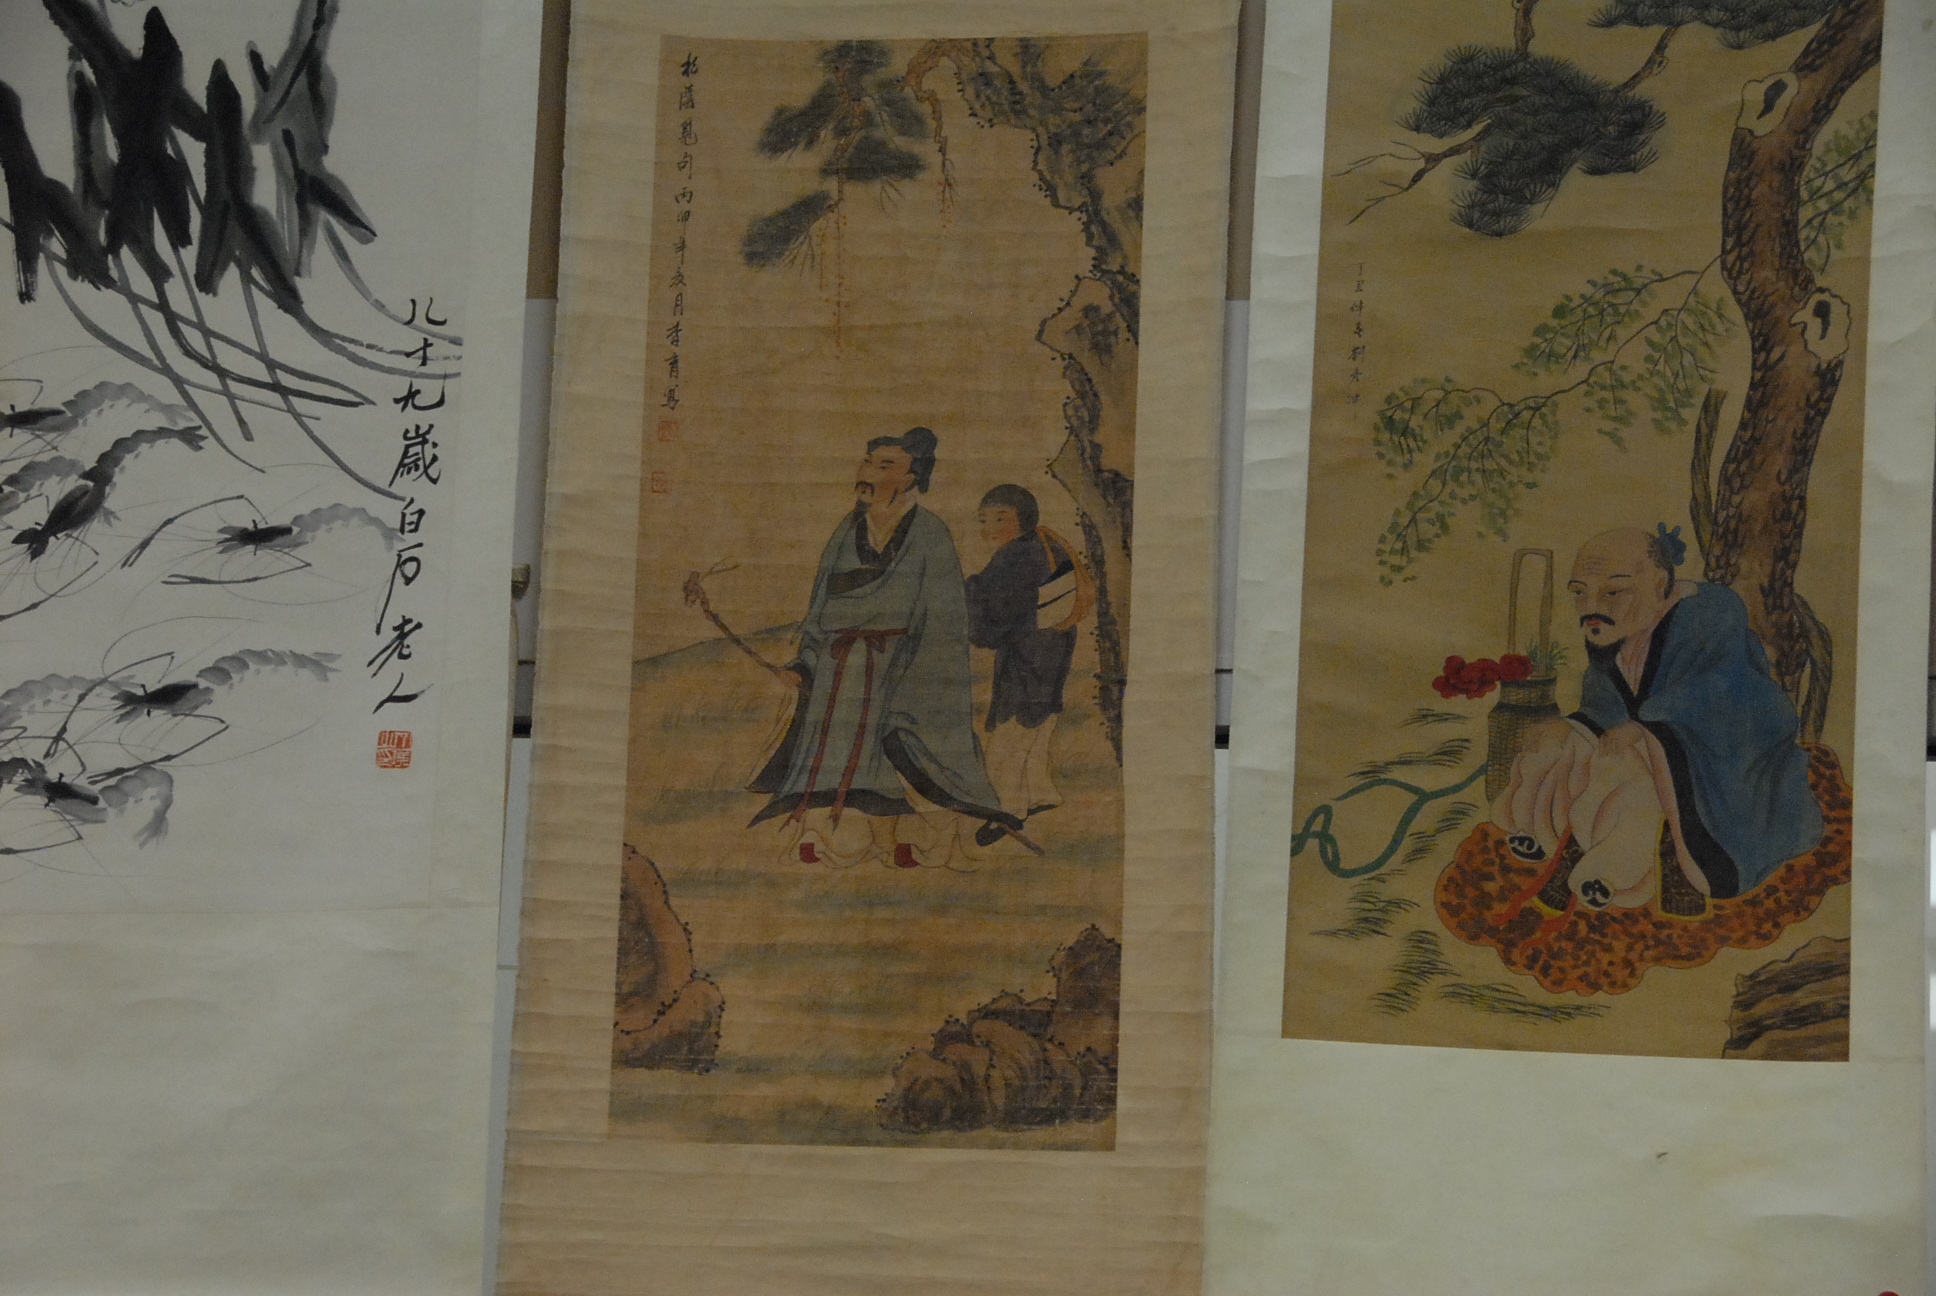 八十九歲白石老人
松蔭覓句丙四年亥月李育寫
丁丑仲春劉